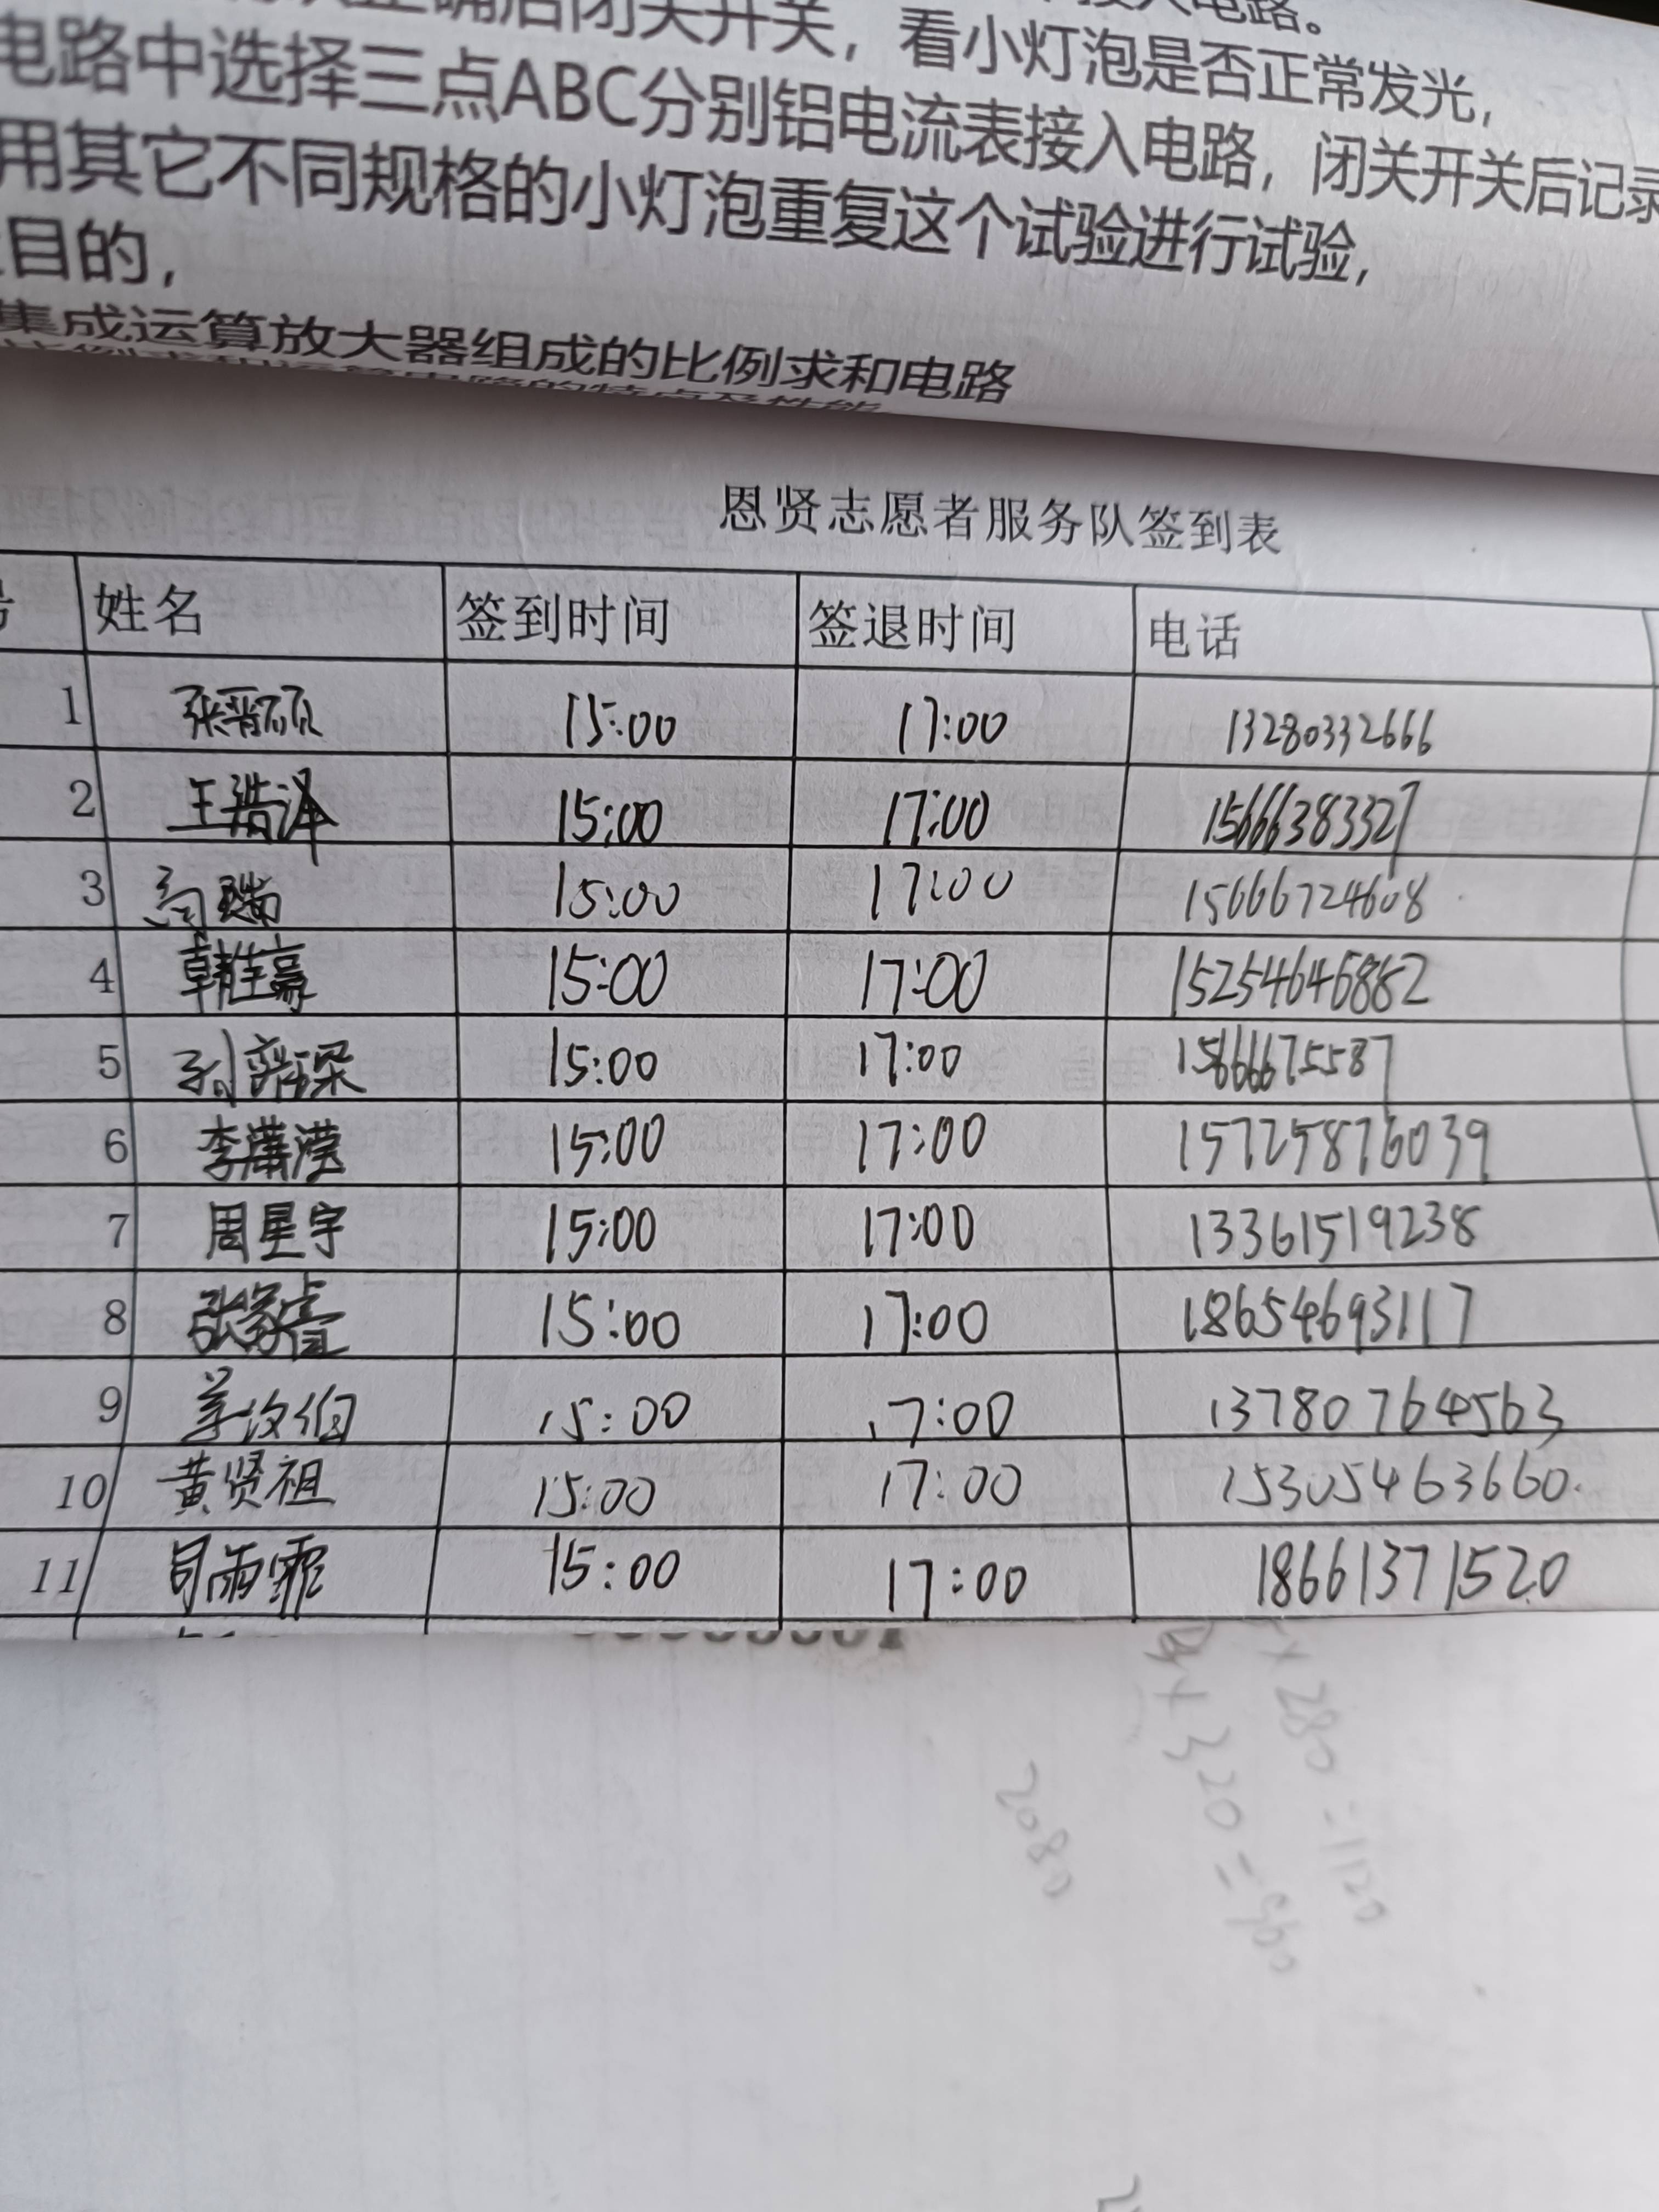 正确后闭关开关，看小灯泡是否正常发光，
电路中选择三点ABC分别铝电流表接入电路，闭关开关后记录
用其它不同规格的小灯泡重复这个试验进行试验，
目的，
集成运算放大器组成的比例求和电路
恩贤志愿者服务队签到表
号 姓名 签到时间 签退时间 电话
1 15:00 17:00 13280332666
2 王浩泽 15:00 17:00 15666383327
3 高瑞 15:00 17:00 15666724608
4 韩胜赢 15:00 17:00 15254646882
5 15:00 17:00 15666675587
6 李潇滢 15:00 17:00 15725876039
7 周星宇 15:00 17:00 13361519238
8 15:00 17:00 18654693117
9 15:00 17:00 13780764563
10 黄贤祖 15:00 17:00 15305463660
11 司雨霏 15:00 17:00 18661371520
2080